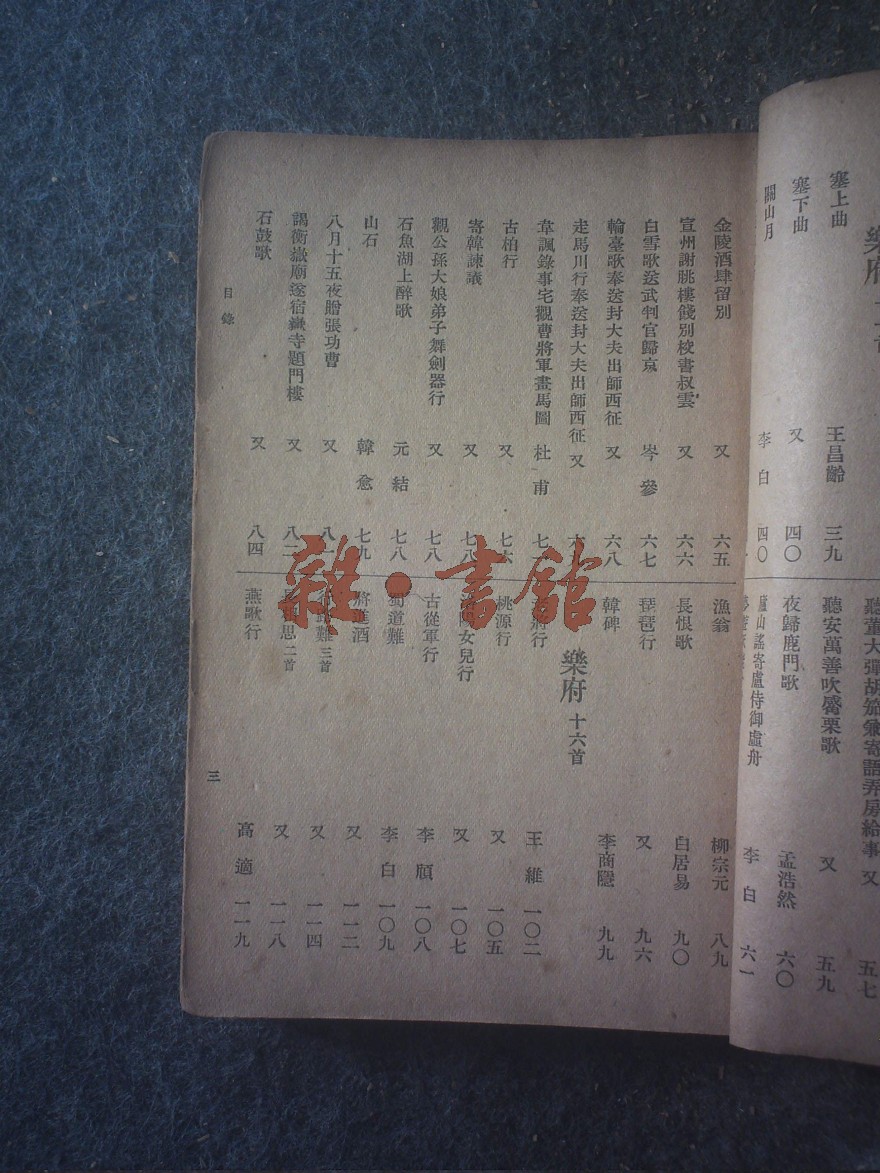 樂府
塞上曲 王昌齡 三九
塞下曲 又 四〇
關山月 李白 四〇
聽董大彈胡笳兼寄語弄房給事 又 五七
聽安萬善吹觱栗歌 又 五九
夜歸鹿門歌 孟浩然 六〇
廬山謠寄盧侍御虛舟 李白 六一
金陵酒肆留別 又 六五
宣州謝朓樓餞別校書叔雲 又 六六
白雪歌送武判官歸京 岑參 六七
輪臺歌奉送封大夫出師西征 又 六八
走馬川行奉送封大夫出師西征 又 六
韋諷錄事宅觀曹將軍畫馬圖 杜甫 七
古柏行 又 七六
寄韓諫議 又 七八
觀公孫大娘弟子舞劍器行 又 七八
石魚湖上醉歌 元結 七八
山石 韓愈 七九
八月十五夜贈張功曹 又 八一
謁衡嶽廟遂宿嶽寺題門樓 又 八二
石鼓歌 又 八四
漁翁 柳宗元 八九
長恨歌 白居易 九〇
琵琶行 又 九六
韓碑 李商隱 九九
樂府 十六首
將行 王維 一〇二
桃源行 又 一〇五
陽女兒行 又 一〇七
古從軍行 李頎 一〇八
蜀道難 李白 一〇九
將進酒 又 一一二
路難 三首 又 一一四
思 二首 又 一一八
燕歌行 高適 一一九
目錄
三
雜·書館